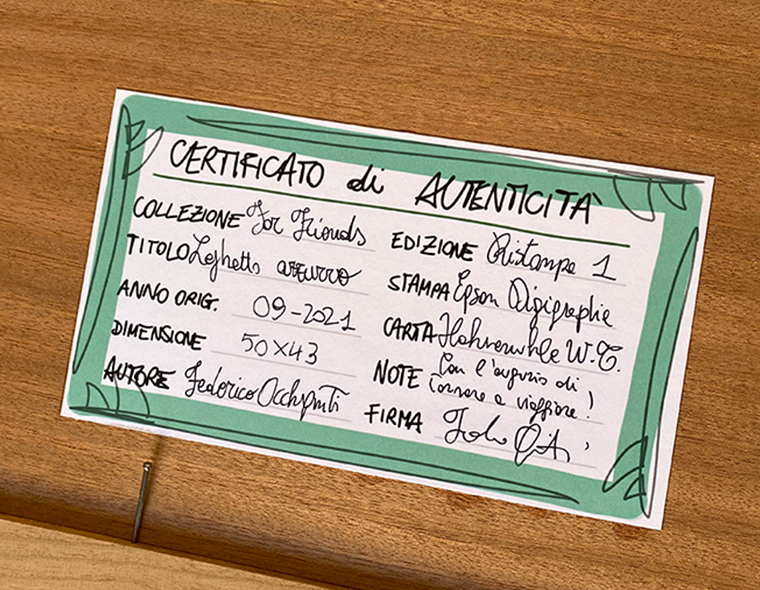 CERTIFICATO di AUTENTICITÀ
COLLEZIONE For Friends
TITOLO Laghetto azzurro
ANNO ORIG. 09-2021
DIMENSIONE 50x43
AUTORE Federico Occhipinti
EDIZIONE Ristampa 1
STAMPA Epson Digigraphie
CARTA Hahnemuhle W.T.
NOTE Con l'augurio di
tornare a viaggiare!
FIRMA